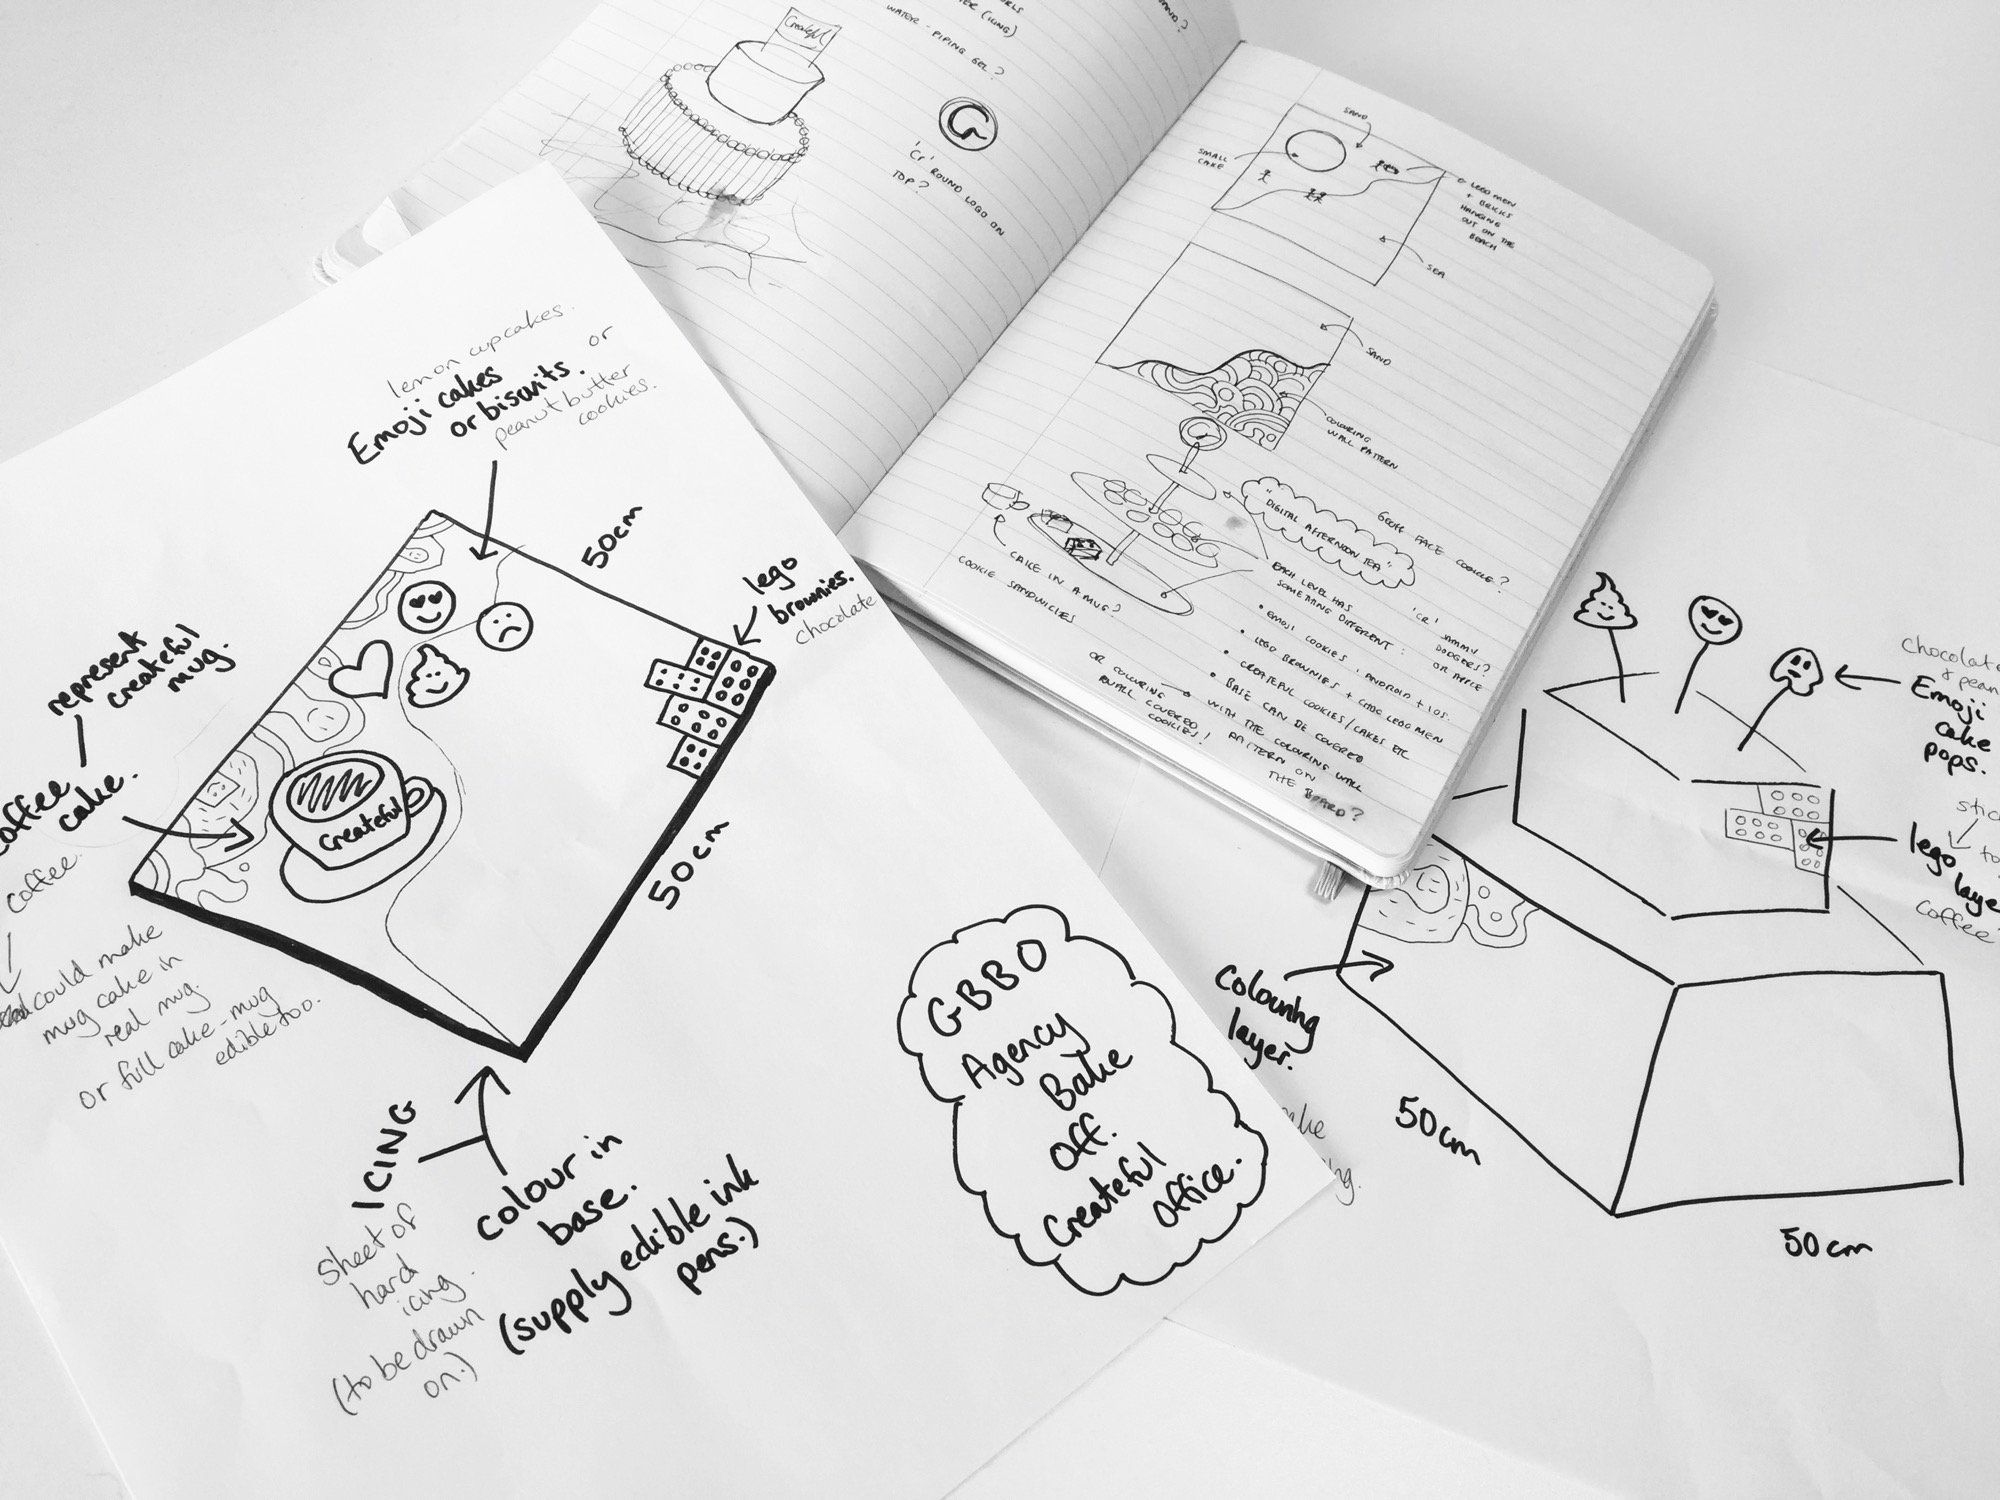 lemon cupcakes.
Emoji cakes or
or biscuits.
peanut butter
cookies.
50cm
lego
brownies.
chocolate
represent
createful
mug.
cake.
coffee.
could make
mug cake in
real mug.
or full cake-mug
edible too.
Createful
50cm
ICING
Sheet of
hard
icing.
(to be drawn
on.)
colour in
base.
(supply edible ink
pens.)
GBBO
Agency
Bake
Off.
Createful
Office.
Createful
(ICING)
WATER - PIPING GEL?
'Cr' ROUND LOGO ON
TOP?
SAND
SMALL
CAKE
LEGO MEN
+ BRICKS
HANGING
OUT ON THE
BEACH
SEA
SAND
COLOURING
WALL PATTERN
"DIGITAL AFTERNOON TEA"
GEOFF FACE COOKIE?
CAKE IN A MUG?
COOKIE SANDWICHES
EACH LEVEL HAS
SOMETHING DIFFERENT:
'CR' JAMMY
DODGERS?
• EMOJI COOKIES, ANDROID + IOS
• LEGO BROWNIES + CHOC LEGO MEN
• CREATEFUL COOKIES/CAKES ETC
• BASE CAN BE COVERED
WITH THE COLOURING WALL
PATTERN ON
THE BOARD?
OR COLOURING
WALL COVERED
COOKIES!
Emoji
cake
pops.
lego
coffee
Colouring
layer.
50cm
50cm